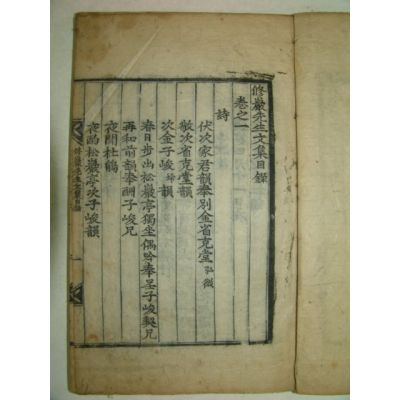 修巖先生文集目錄
卷之一
詩
伏次家君韻奉別金省克堂弘微
敬次省克堂韻
次金子峻韻
春日步出松巖亭獨坐偶吟奉呈子峻契兄
再和前韻奉酬子峻兄
夜聞杜鵑
夜酌松巖亭次子峻韻
修巖先生文集目錄